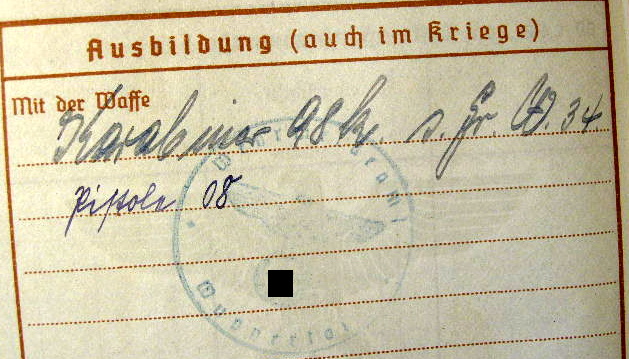 Ausbildung (auch im Kriege)
Mit der Waffe
Karabiner 98k. s. Gr. W. 34
Pistole 08
Wuppertal